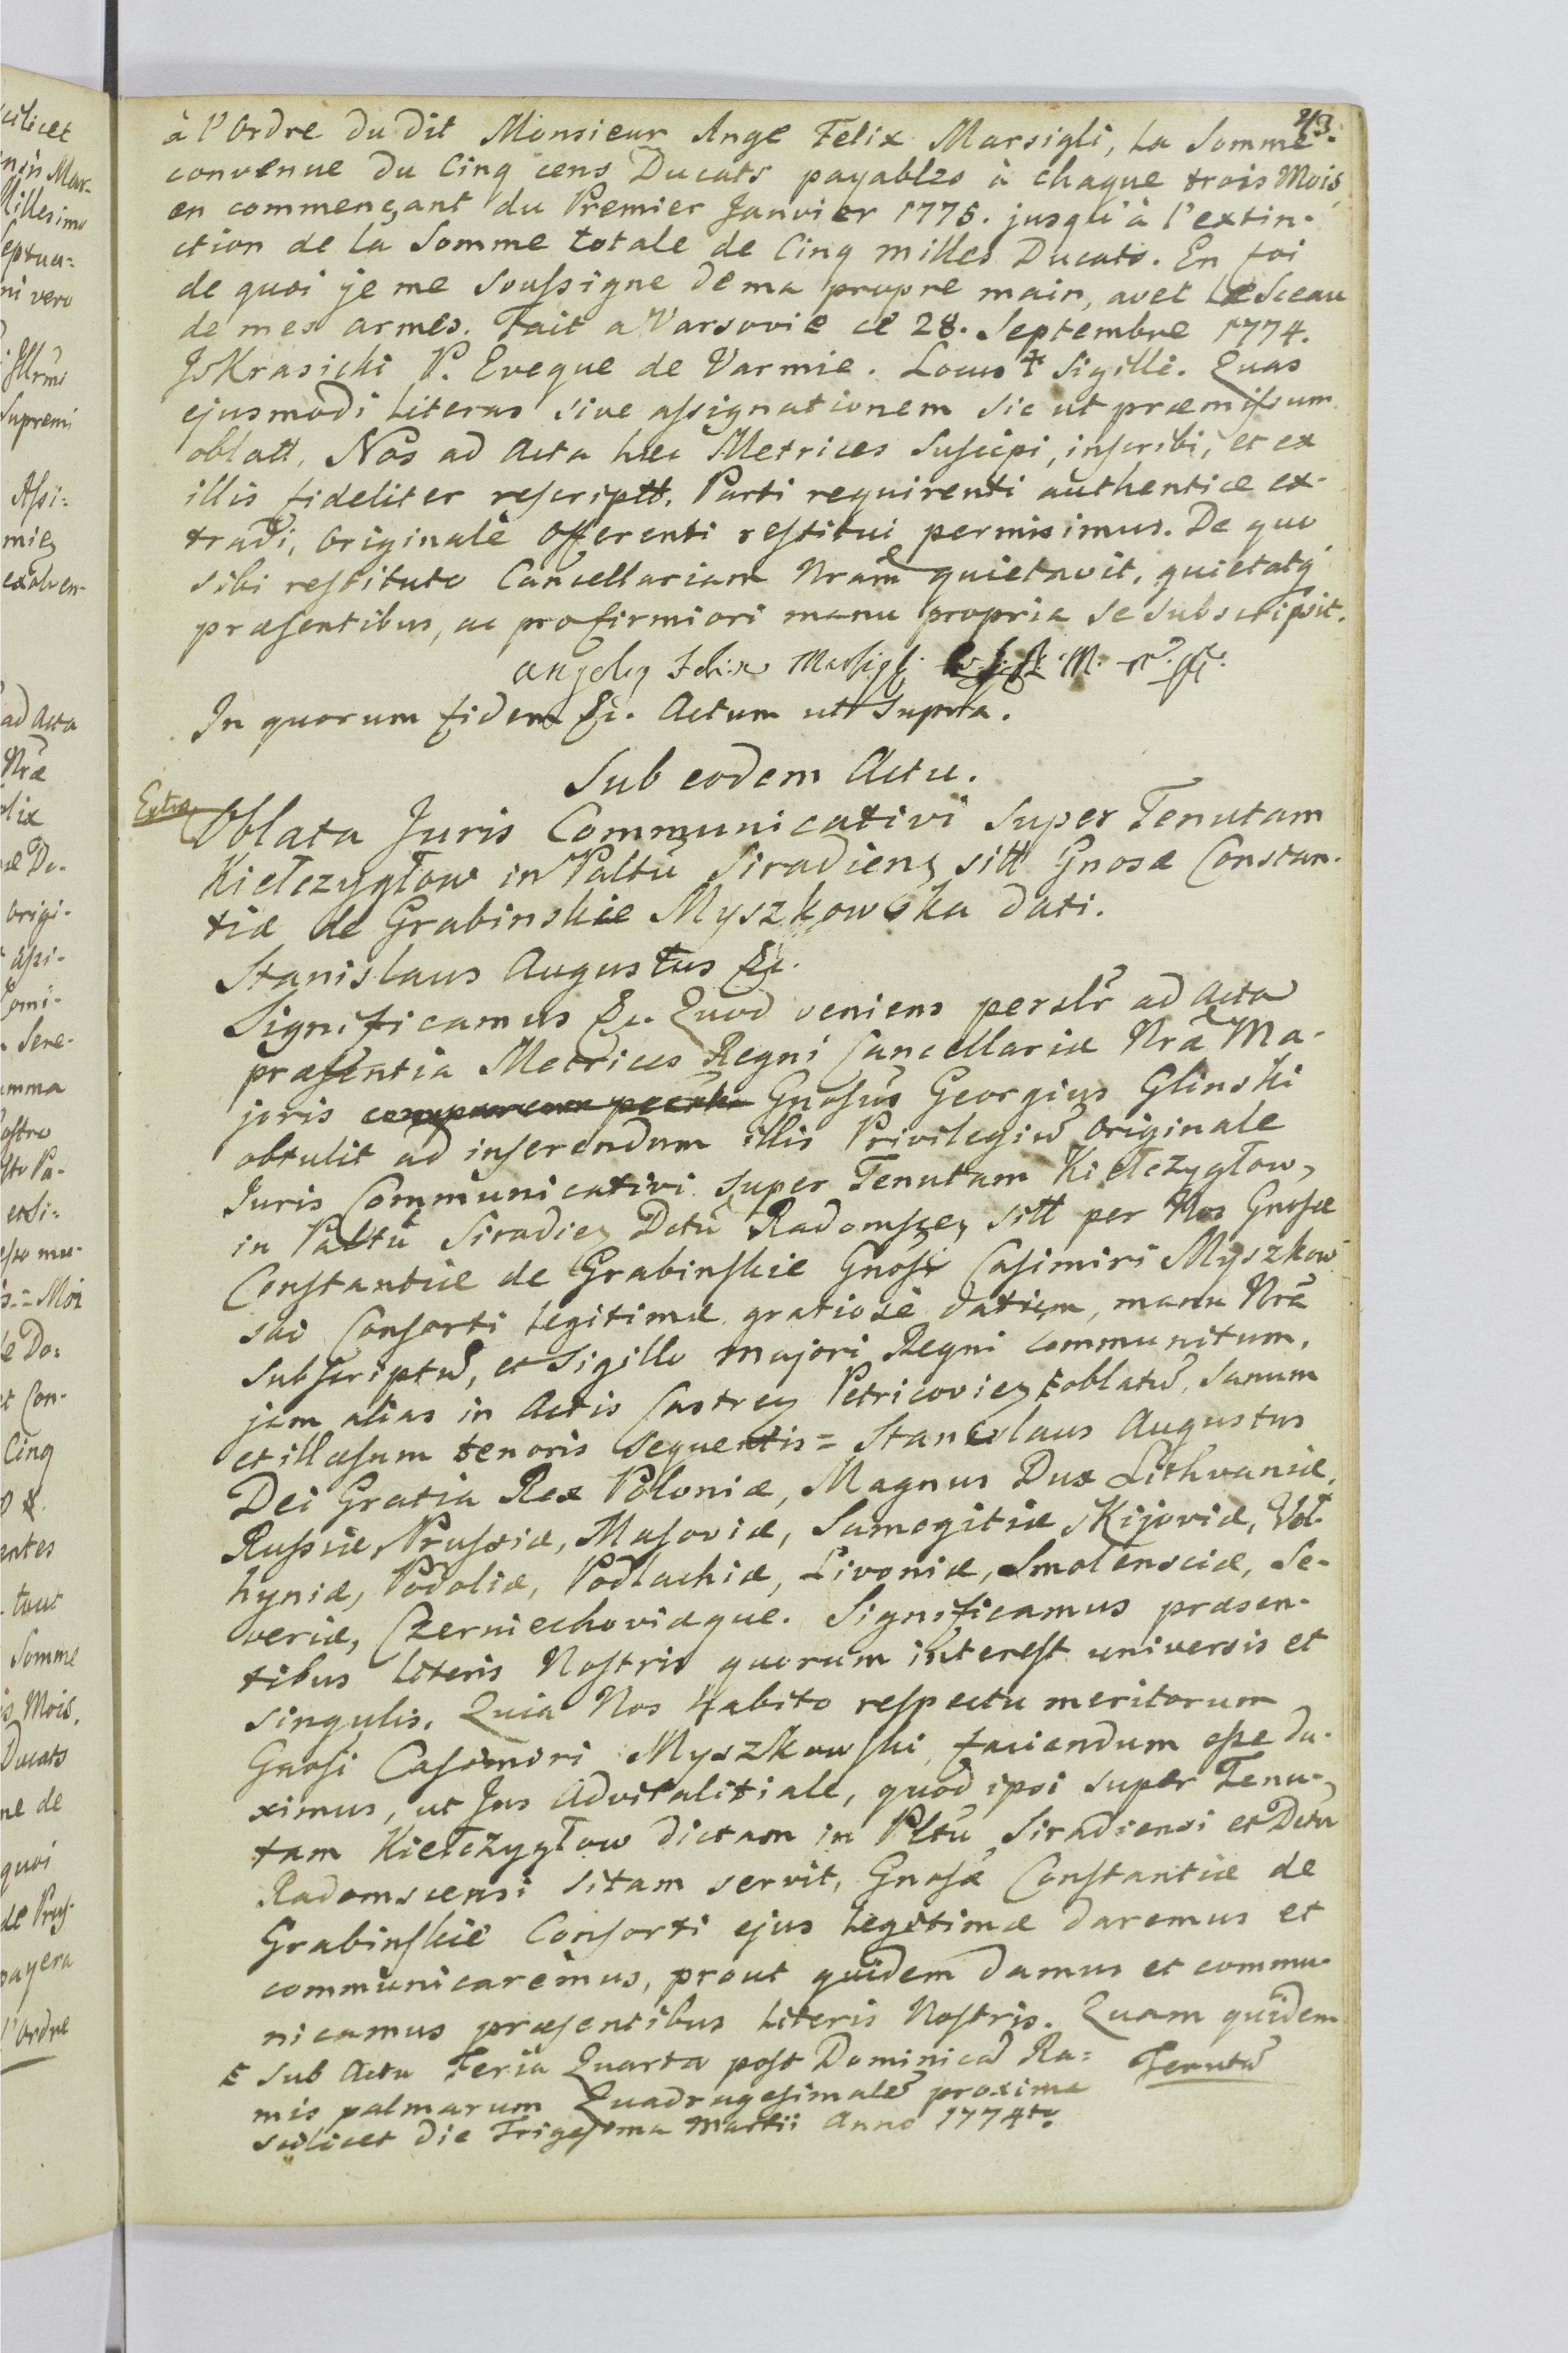 43.
à l'Ordre du dit Monsieur Ange Felix Marsigli, La Somme
convenue du Cinq cens Ducats payables à chaque trois Mois
en commençant du Premier Janvier 1775. jusqu'à l'extin-
ction de la Somme totale de Cinq milles Ducats. En foi
de quoi je me soussigne de ma propre main, avec Le Sceau
de mes armes. Fait a Varsovie ce 28. Septembre 1774.
Krasicki P. Eveque de Varmie. Locus ‡ Sigilli. Quas
ejusmodi Literas sive assignationem sic ut præmissum
oblatt, Nos ad Acta hæc Metrices Suscipi, inscribi, et ex
illis fideliter rescriptt, Parti requirenti authentice ex-
tradi, Originale Offerenti restitui permisimus. De quo
sibi restituto Cancellariam Nram quietavit, quietatq
præsentibus, ac pro firmiori manu propria se subscripsit.
Angelus Felix Marsigli
In quorum fidem &c. Actum ut Supra.
Sub eodem Actu.
Extra
Oblata Juris Communicativi super Tenutam
Kiełczygłow in Paltu Siradienz sitt Gnosæ Constan-
tiæ de Grabinskie Myszkowska dati.
Stanislaus Augustus &c.
Significamus &c. Quod veniens perslr ad Acta
præsentia Metrices Regni Cancellariæ Nræ Ma-
joris Gnosus Georgius Glinski
obtulit ad inserendum illis Privilegiu Originale
Juris Communicativi super Tenutam Kiełczygłow,
in Paltu Siradiez Dctu Radomscez sitt per Nos Gnosæ
Constantiæ de Grabinskie Gnosi Casimiri Myszkow-
ski Consorti Legitimæ gratiose datum, manu Nra
Subscriptu, et Sigillo majori Regni communitum,
jam alias in Actis Castrez Petricoviez ‡oblatu, Sanum
et illæsum tenoris sequentis = Stanislaus Augustus
Dei Gratia Rex Poloniæ, Magnus Dux Lithvaniæ,
Russiæ, Prussiæ, Masoviæ, Samogitiæ, Kijoviæ, Vol-
hyniæ, Podoliæ, Podlachiæ, Livoniæ, Smolensciæ, Se-
veriæ, Czerniechoviæque. Significamus præsen-
tibus Literis Nostris quorum interest universis et
singulis, Quia Nos habito respectu meritorum
Gnosi Casimiri Myszkowski, faciendum esse du-
ximus, ut Jus Advitalitiale, quod ipsi super Tenu-
tam Kiełczygłow dictam in Pltu Siradiensi et Dctu
Radomscensi sitam servit, Gnosæ Constantiæ de
Grabinskie Consorti ejus Legitimæ daremus et
communicaremus, prout quidem damus et commu-
nicamus præsentibus Literis Nostris. Quam quidem
Tenuta
‡ Sub Actu Feria Quarta post Dominica Ra=
mis palmarum Quadragesimale proxima
scilicet die Trigesima Martii Anno 1774to